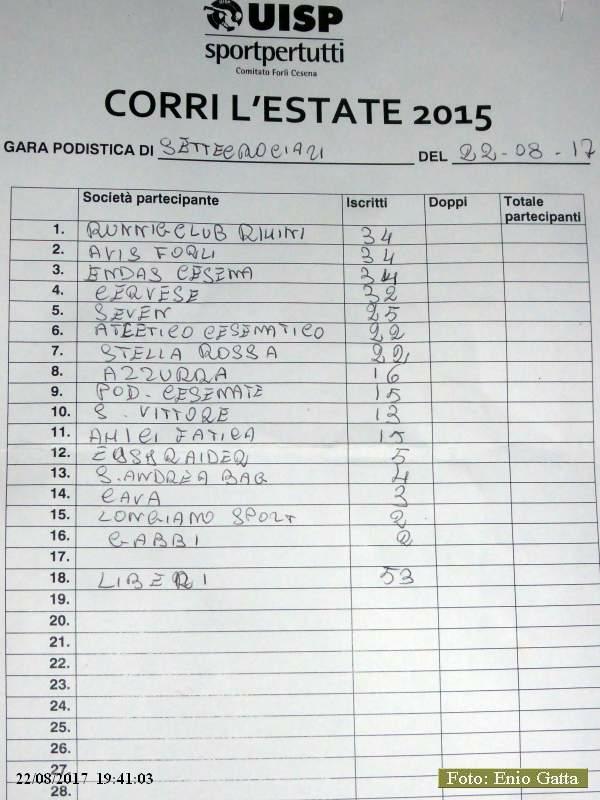 UISP
sportpertutti
Comitato Forlì Cesena
CORRI L'ESTATE 2015
GARA PODISTICA DI SETTECROCIARI DEL 22-08-17
Società partecipante Iscritti Doppi Totale partecipanti
1. RUNNIGCLUB RIMINI 34
2. AVIS FORLI 34
3. ENDAS CESENA 34
4. CERVESE 32
5. SEVEN 25
6. ATLETICO CESENATICO 22
7. STELLA ROSSA 22
8. AZZURRA 16
9. POD. CESENATE 15
10. S. VITTORE 13
11. AMICI FATICA 15
12. 5
13. S. ANDREA BAG 4
14. CAVA 3
15. LONGIANO SPORT 2
16. GABBI 2
17.
18. LIBERI 53
19.
20.
21.
22.
23.
24.
25.
26.
27.
28.
22/08/2017 19:41:03
Foto: Enio Gatta